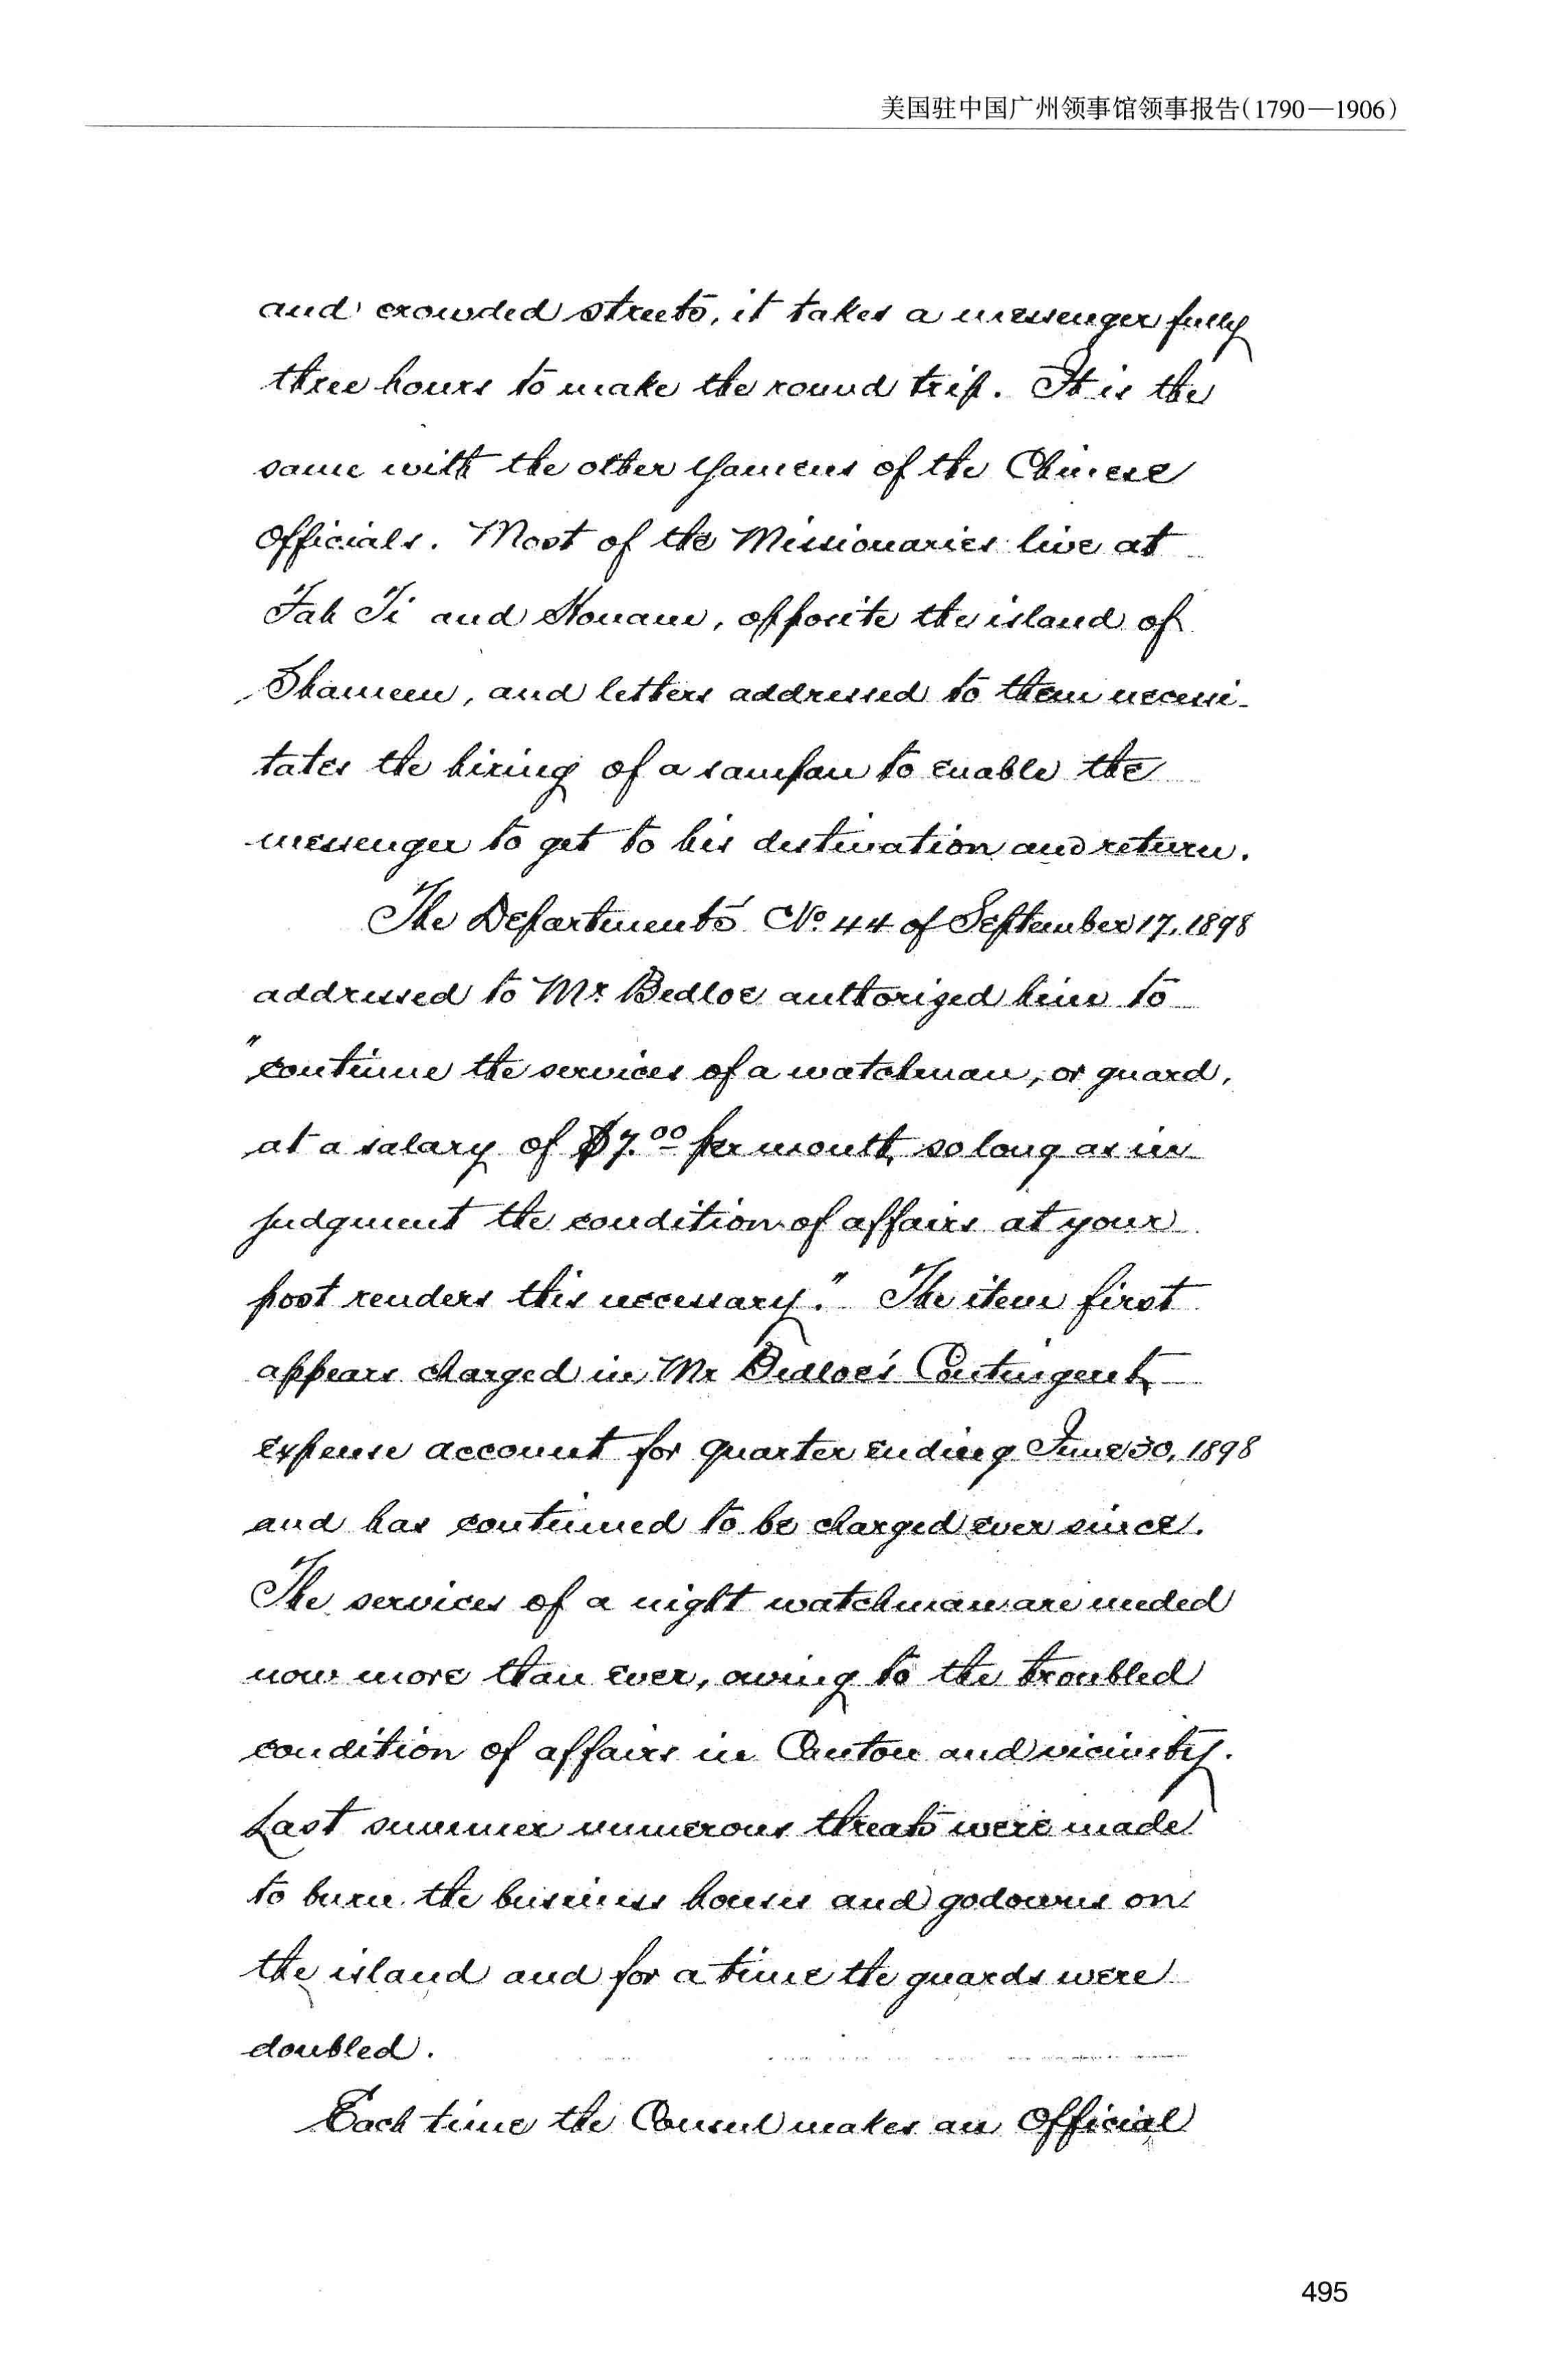 美国驻中国广州领事馆领事报告(1790—1906)
and crowded streets, it takes a messenger fully
three hours to make the round trip. It is the
same with the other Yamens of the Chinese
Officials. Most of the Missionaries live at
Fah Ti and Honam, opposite the island of
Shameen, and letters addressed to them necessi-
tates the hiring of a sampan to enable the
messenger to get to his destination and return.
The Department's No. 44 of September 17, 1898
addressed to Mr. Bedloe authorized him to
"continue the services of a watchman, or guard,
at a salary of $7.00 per month, so long as in
judgment the condition of affairs at your
post renders this necessary." The item first
appears charged in Mr Bedloe's Contingent
expense account for quarter ending June 30, 1898
and has continued to be charged ever since.
The services of a night watchman are needed
now more than ever, owing to the troubled
condition of affairs in Canton and vicinity.
Last summer numerous threats were made
to burn the business houses and godowns on
the island and for a time the guards were
doubled.
Each time the Consul makes an Official
495